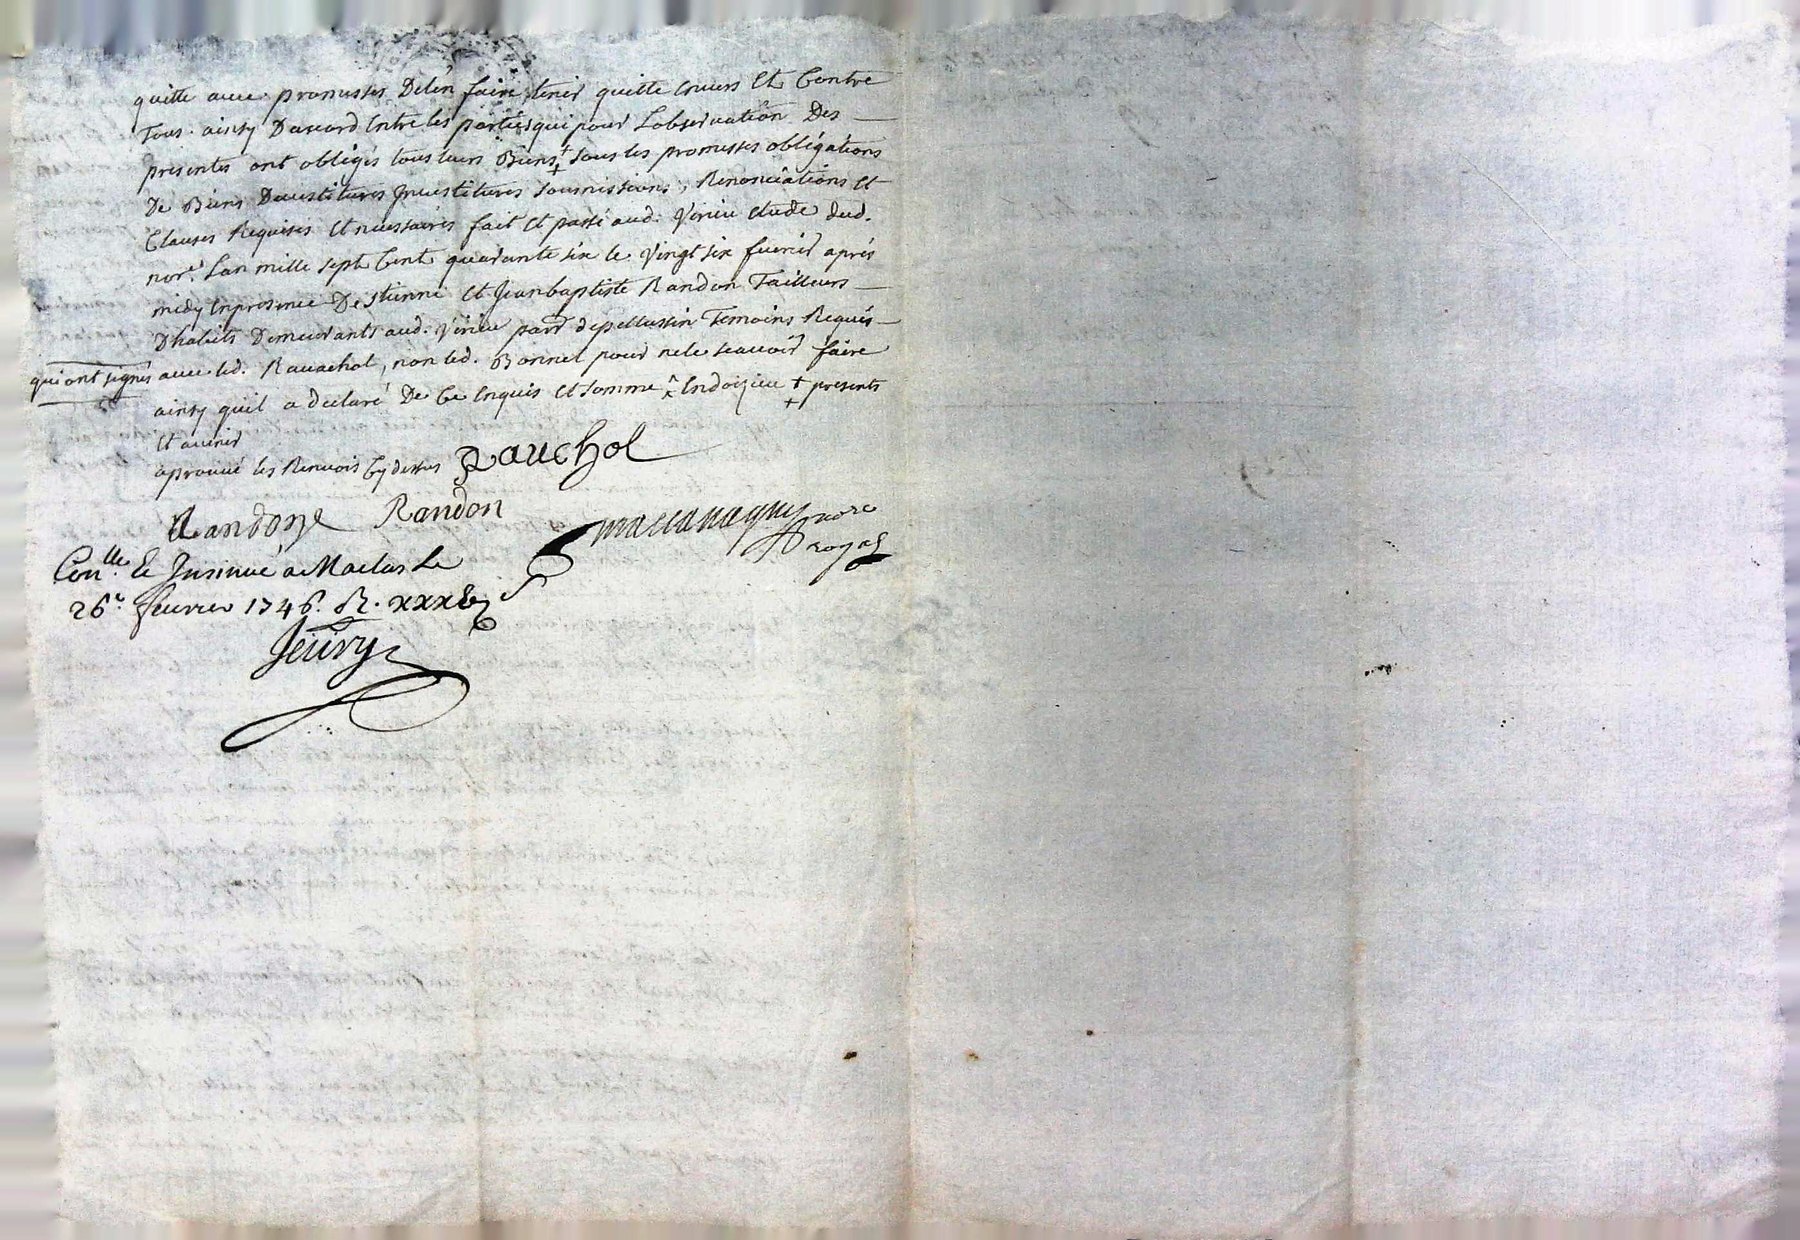 quitte avec promesses Delen faire tenir quitte envers Et Contre
Tous. ainsy Daccord Entre les parties qui pour Lobservation Des
presentes ont obligés tous leurs Biens + sous les promesses obligations
De Biens Devestitures Investitures soumissions, Renonciations Et
Clauses Requises Et necessaires fait Et passé aud. Virieu etude dud.
nore. Lan mille sept Cent quarante six le Vingt six fuvrier après
midy Enpresence De Etienne Et Jeanbaptiste Randon Tailleurs
Dhabits Demeurants aud. Virieu parr. depellussin Temoins Requis
qui ont signés avec led. Ravachol, non led. Bonnet pour nele scavoir faire
ainsy quil a declaré De Ce Enquis Et sommé ^ Endoizieu + presents
Et avenir
aprouvé les Renvois Cydessus Rauchol
Randon Randon
nore
royal
Conlle. Et Insinué a Maclas Le
26e. fevrier 1746. R.